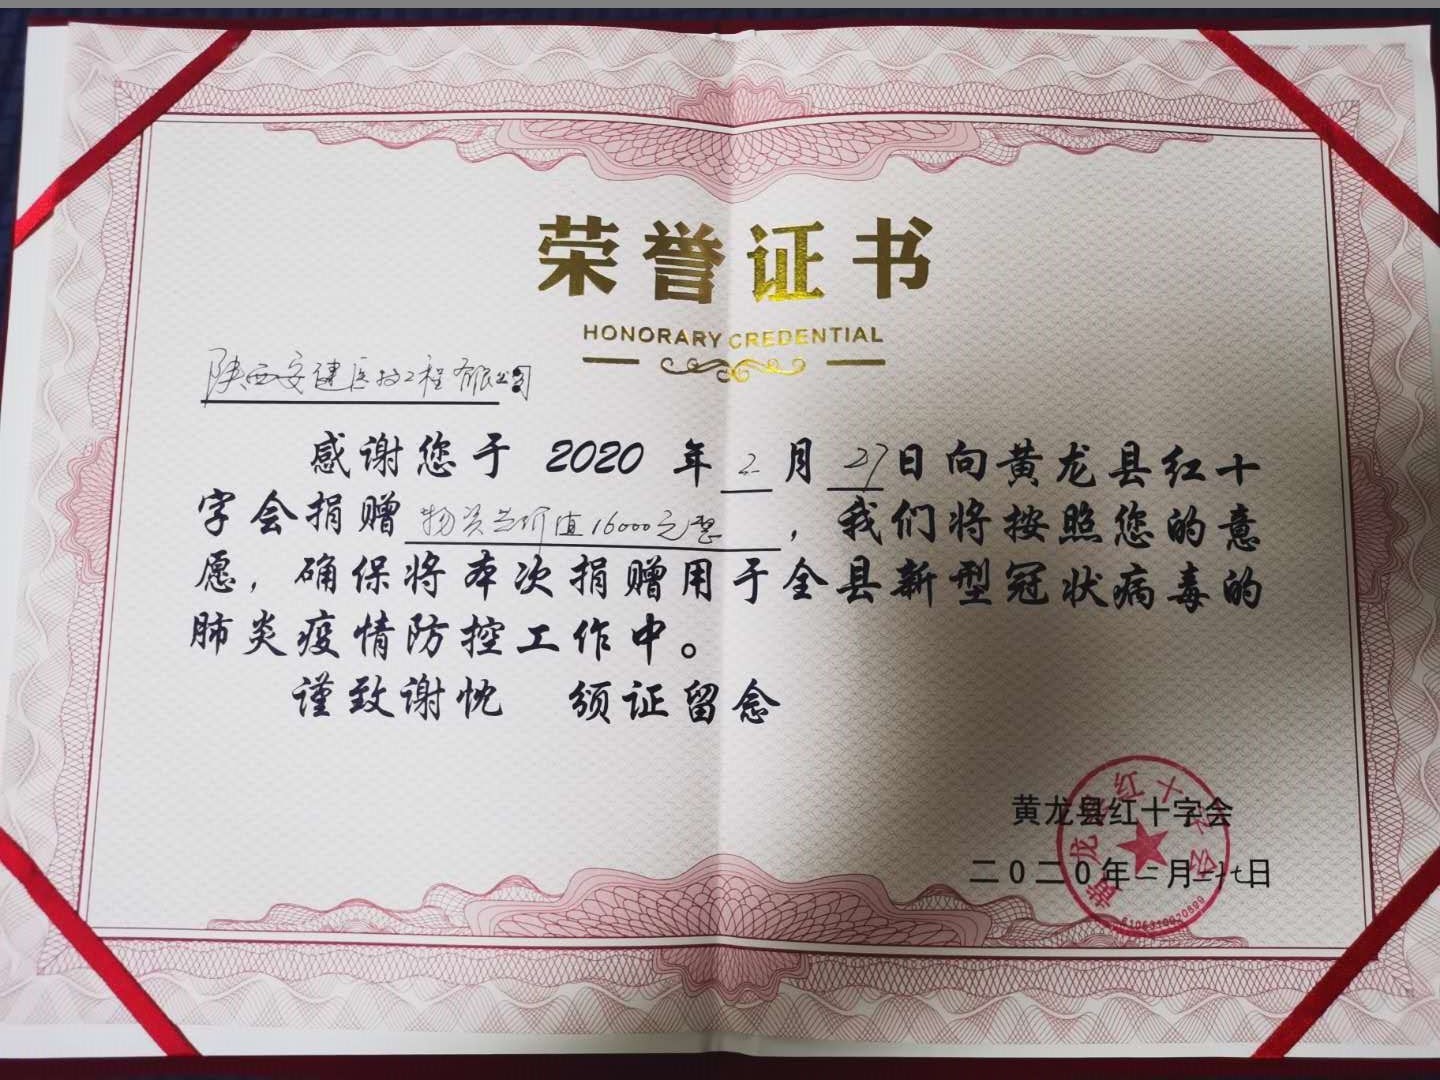 荣誉证书
HONORARY CREDENTIAL
陕西安健医技工程有限公司
感谢您于 2020 年 2 月 27 日向黄龙县红十
字会捐赠 物资总价值16000元整 ，我们将按照您的意
愿，确保将本次捐赠用于全县新型冠状病毒的
肺炎疫情防控工作中。
谨致谢忱 颁证留念
黄龙县红十字会
二0二0年二月二十七日
黄龙县红十字会